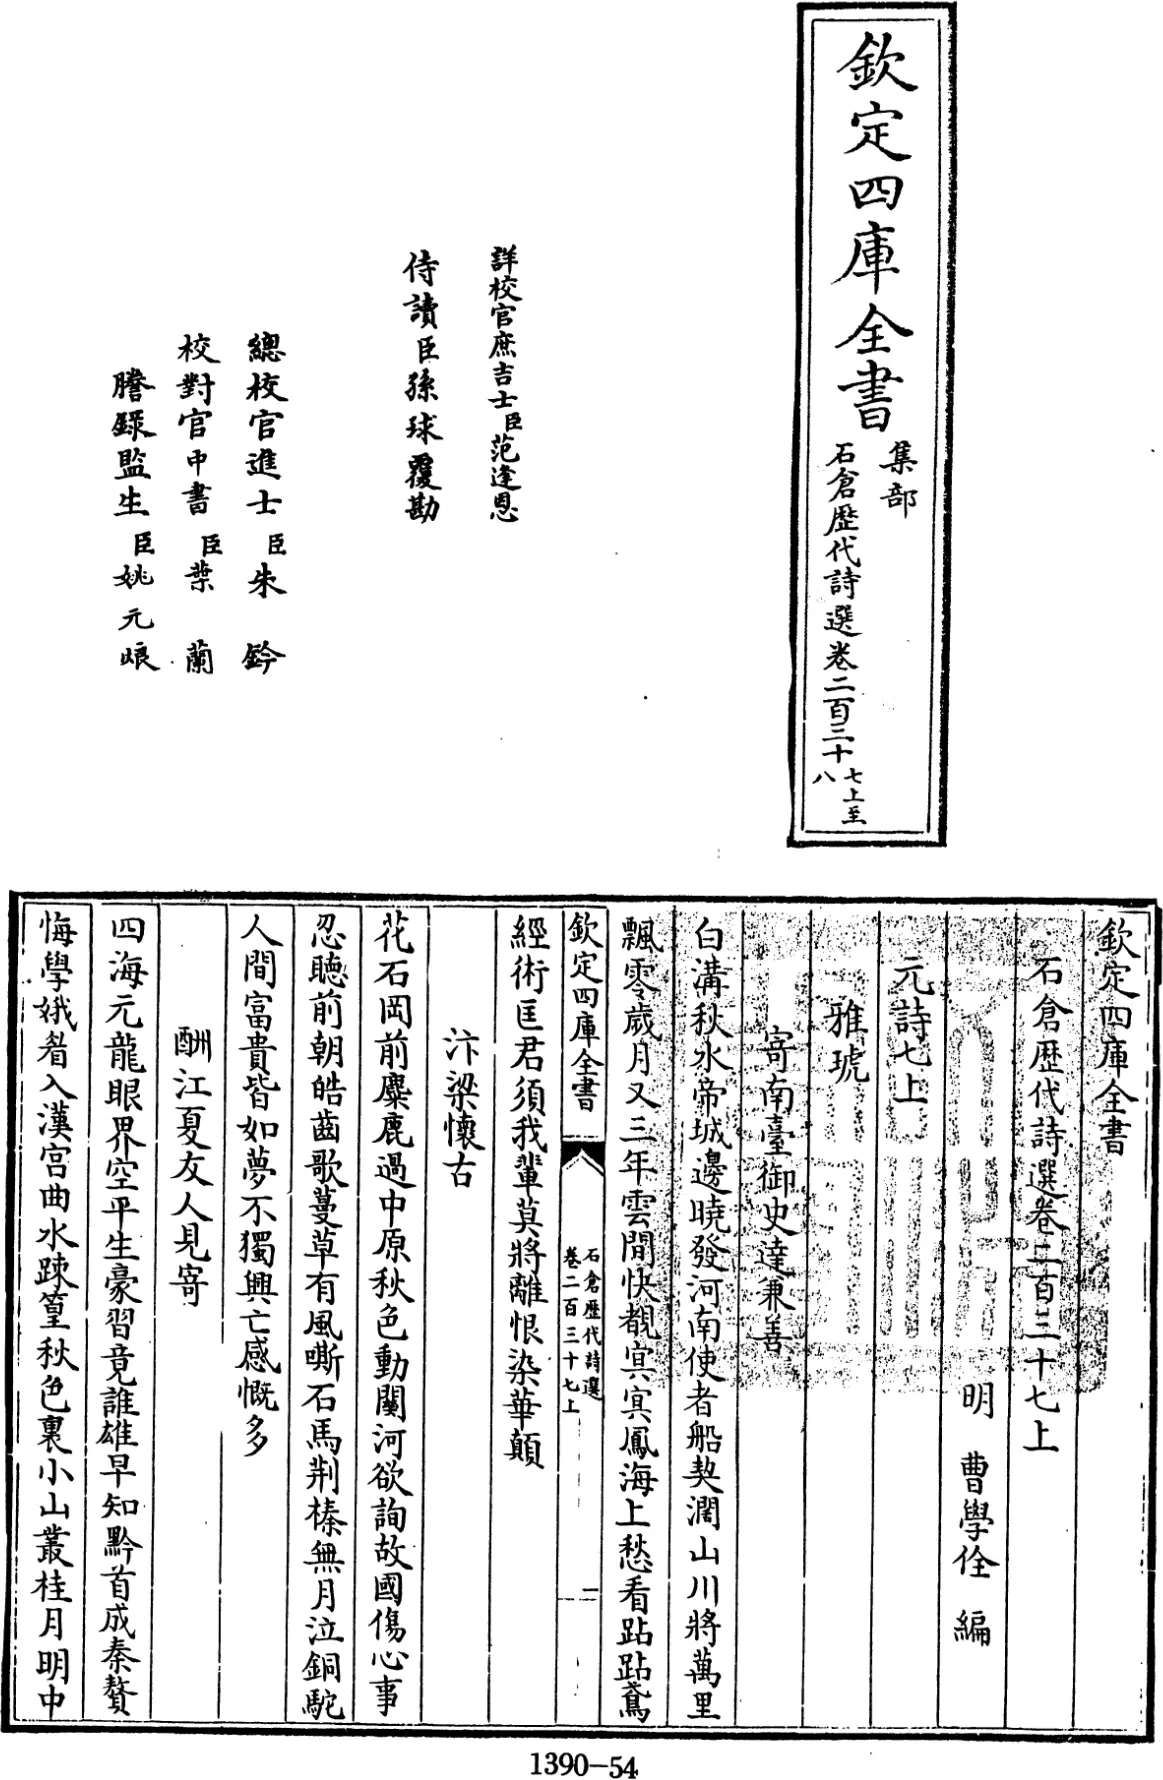 欽定四庫全書
集部
石倉歷代詩選卷二百三十
七上至
八
詳校官庶吉士臣范逢恩
侍讀臣孫球覆勘
總校官進士臣朱鈐
校對官中書臣葉蘭
謄錄監生臣姚元
欽定四庫全書
石倉歷代詩選卷二百三十七上
明 曹學佺 編
元詩七上
雅琥
寄南臺御史達兼善
白溝秋水帝城邊曉發河南使者船契濶山川將萬里
飄零歲月又三年雲間快覩冥冥鳳海上愁看跕跕鳶
欽定四庫全書
石倉歷代詩選
卷二百三十七上
一
經術匡君須我輩莫將離恨染華顛
汴梁懷古
花石岡前麋鹿過中原秋色動關河欲詢故國傷心事
忍聽前朝皓齒歌蔓草有風嘶石馬荆榛無月泣銅駝
人間富貴皆如夢不獨興亡感慨多
酬江夏友人見寄
四海元龍眼界空平生豪習竟誰雄早知黔首成秦贅
悔學娥眉入漢宫曲水疎篁秋色裏小山叢桂月明中
1390-54